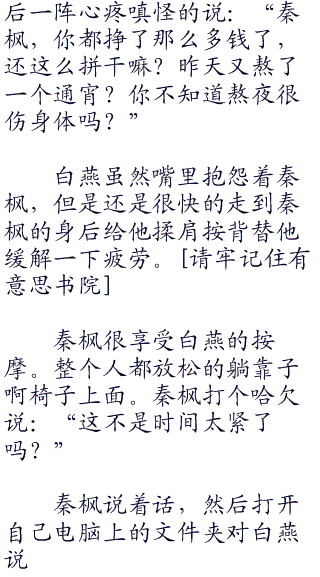 后一阵心疼嗔怪的说：“秦
枫，你都挣了那么多钱了，
还这么拼干嘛？昨天又熬了
一个通宵？你不知道熬夜很
伤身体吗？”
白燕虽然嘴里抱怨着秦
枫，但是还是很快的走到秦
枫的身后给他揉肩按背替他
缓解一下疲劳。[请牢记住有
意思书院]
秦枫很享受白燕的按
摩。整个人都放松的躺靠子
啊椅子上面。秦枫打个哈欠
说：“这不是时间太紧了
吗？”
秦枫说着话，然后打开
自己电脑上的文件夹对白燕
说